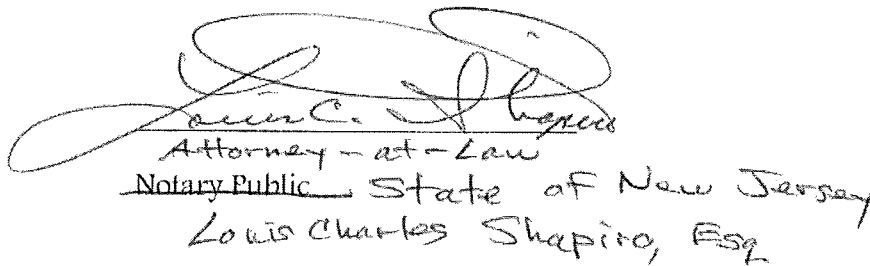 Louis C. Shapiro
Attorney-at-Law
Notary Public State of New Jersey
Louis Charles Shapiro, Esq